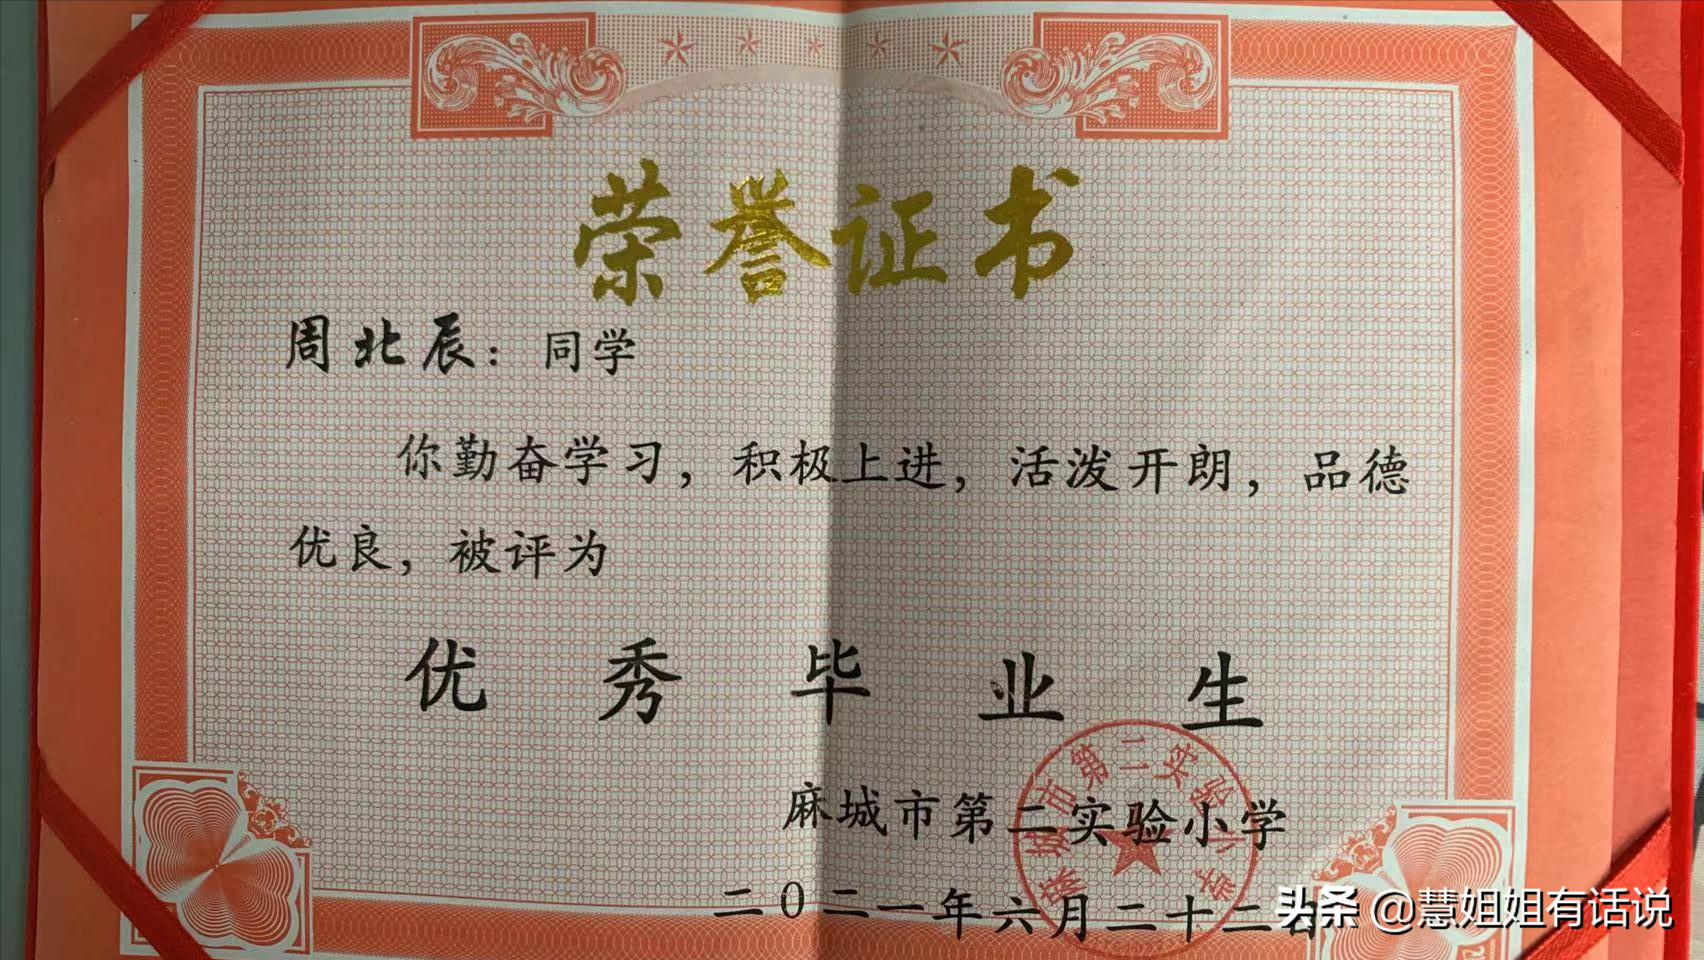 荣誉证书
周北辰：同学
你勤奋学习，积极上进，活泼开朗，品德
优良，被评为
优秀毕业生
麻城市第二实验小学
麻城市第二实验小学
二〇二一年六月二十二日
头条 @慧姐姐有话说